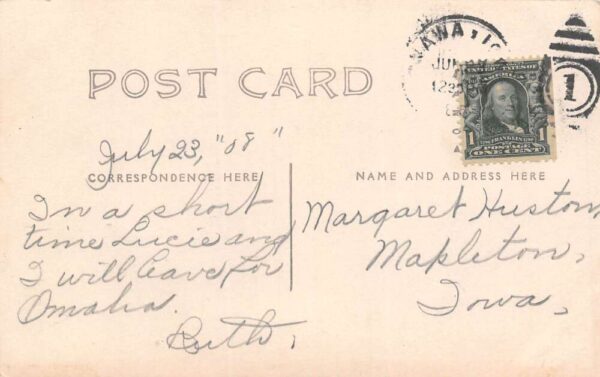 POST CARD
July 23, "08"
CORRESPONDENCE HERE
In a short
time Lucie and
I will leave for
Omaha.
Ruth,
NAME AND ADDRESS HERE
Margaret Huston,
Mapleton,
Iowa,
AWA, IO
1230
1
UNITED STATES OF
AMERICA
FRANKLIN
1 POSTAGE 1
ONE CENT